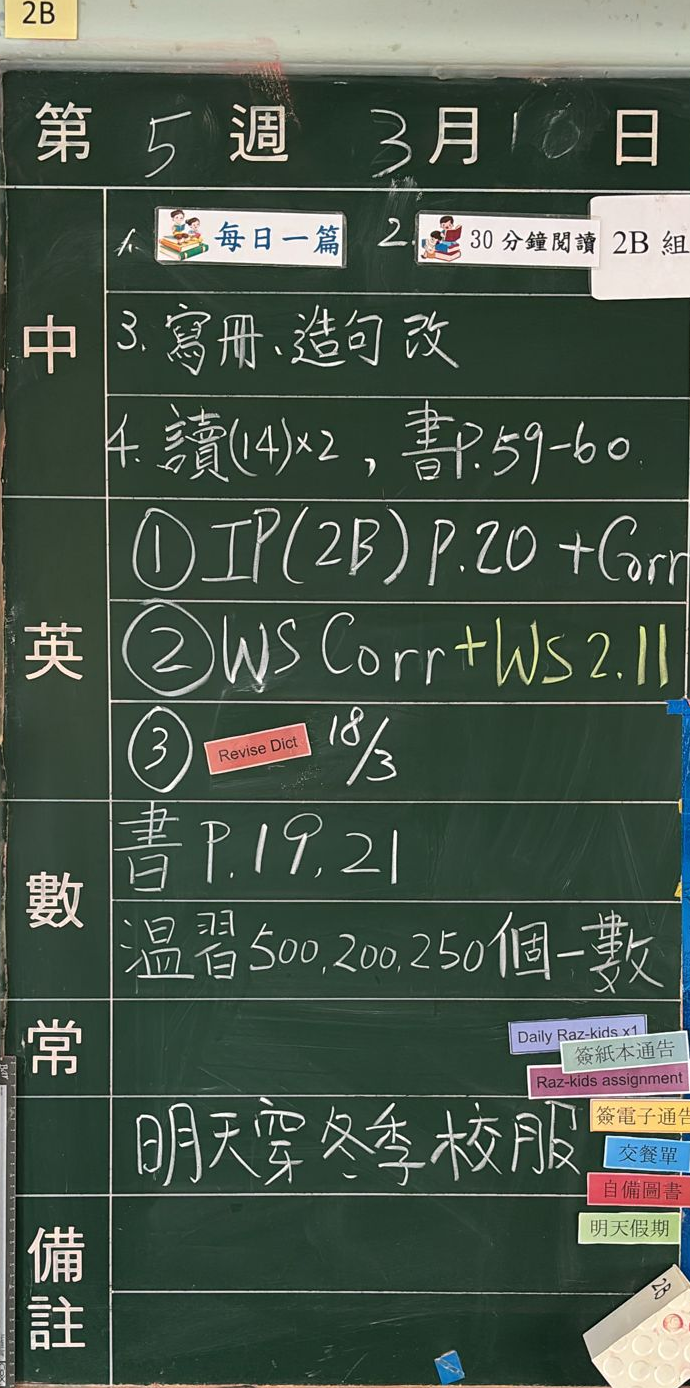 2B
第 5 週 3 月 10 日
中
1. 每日一篇 2. 30 分鐘閱讀 2B 組
3. 寫冊、造句 改
4. 讀(14)×2,書P.59-60
英
① IP(2B) P.20 + Corr
② WS Corr + WS 2.11
③ Revise Dict 18/3
數
書 P.19, 21
溫習500,200,250個一數
常
Daily Raz-kids x1
簽紙本通告
Raz-kids assignment
明天穿冬季校服
簽電子通告
交餐單
自備圖書
明天假期
備註
2B